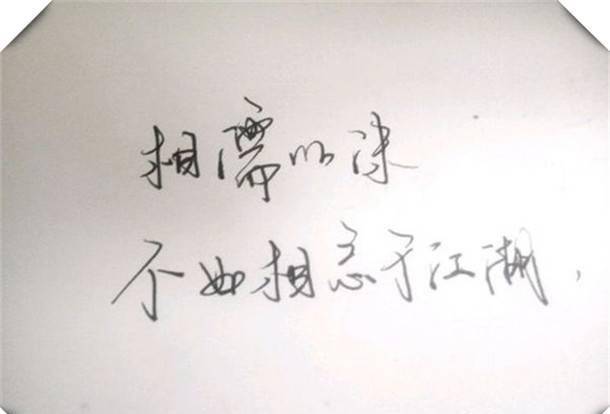 相濡以沫
不如相忘于江湖，